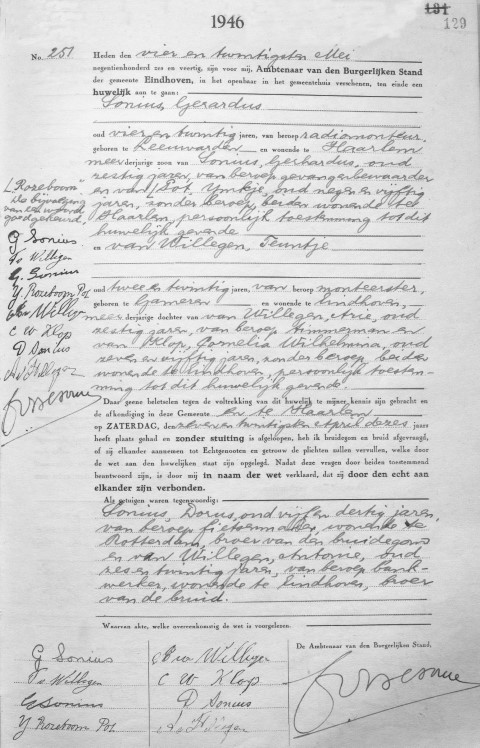 1946
191
129
No. 251
Heden den vier en twintigsten Mei
negentienhonderd zes en veertig, zijn voor mij, Ambtenaar van den Burgerlijken Stand
der gemeente Eindhoven, in het openbaar in het gemeentehuis verschenen, ten einde een
huwelijk aan te gaan:
Sonius, Gerardus
oud vier en twintig jaren, van beroep radiomonteur,
geboren te Leeuwarden en wonende te Haarlem
meerderjarige zoon van Sonius, Gerhardus, oud
zestig jaren, van beroep gevangenbewaarder
en van Pot, Ymkje, oud negen en vijftig
jaren, zonder beroep, beiden wonende te
Haarlem, persoonlijk toestemming tot dit
huwelijk gevende
en van Willegen, Teuntje
oud twee en twintig jaren, van beroep monteerster,
geboren te Gameren en wonende te Eindhoven,
meerderjarige dochter van van Willegen, Arie, oud
zestig jaren, van beroep timmerman en
van Klop, Cornelia Wilhelmina, oud
zeven en vijftig jaren, zonder beroep, beiden
wonende te Eindhoven, persoonlijk toestem-
ming tot dit huwelijk gevende.
Daar geene beletselen tegen de voltrekking van dit huwelijk te mijner kennis zijn gebracht en
de afkondiging in deze Gemeente en te Haarlem
op ZATERDAG, den zeven en twintigsten April dezes jaars
heeft plaats gehad en zonder stuiting is afgeloopen, heb ik bruidegom en bruid afgevraagd,
of zij elkander aannemen tot Echtgenooten en getrouw de plichten zullen vervullen, welke door
de wet aan den huwelijken staat zijn opgelegd. Nadat deze vragen door beiden toestemmend
beantwoord zijn, is door mij in naam der wet verklaard, dat zij door den echt aan
elkander zijn verbonden.
Als getuigen waren tegenwoordig:
Sonius, Dorus, oud vijf en dertig jaren,
van beroep fietsenmaker, wonende te
Rotterdam, broer van den bruidegom
en van Willegen, Antonie, oud
zes en twintig jaren, van beroep bank-
werker, wonende te Eindhoven, broer
van de bruid.
Waarvan akte, welke overeenkomstig de wet is voorgelezen.
L "Rozeboom"
De bijvoeging
van een woord
goedgekeurd.
G Sonius
T v Willigen
G. Sonius
Y Rozeboom Pot
A v Willigen
C W Klop
D Sonius
De Ambtenaar van den Burgerlijken Stand,
G Sonius
T v Willigen
G Sonius
Y Rozeboom Pot
A v Willigen
C W Klop
D Sonius